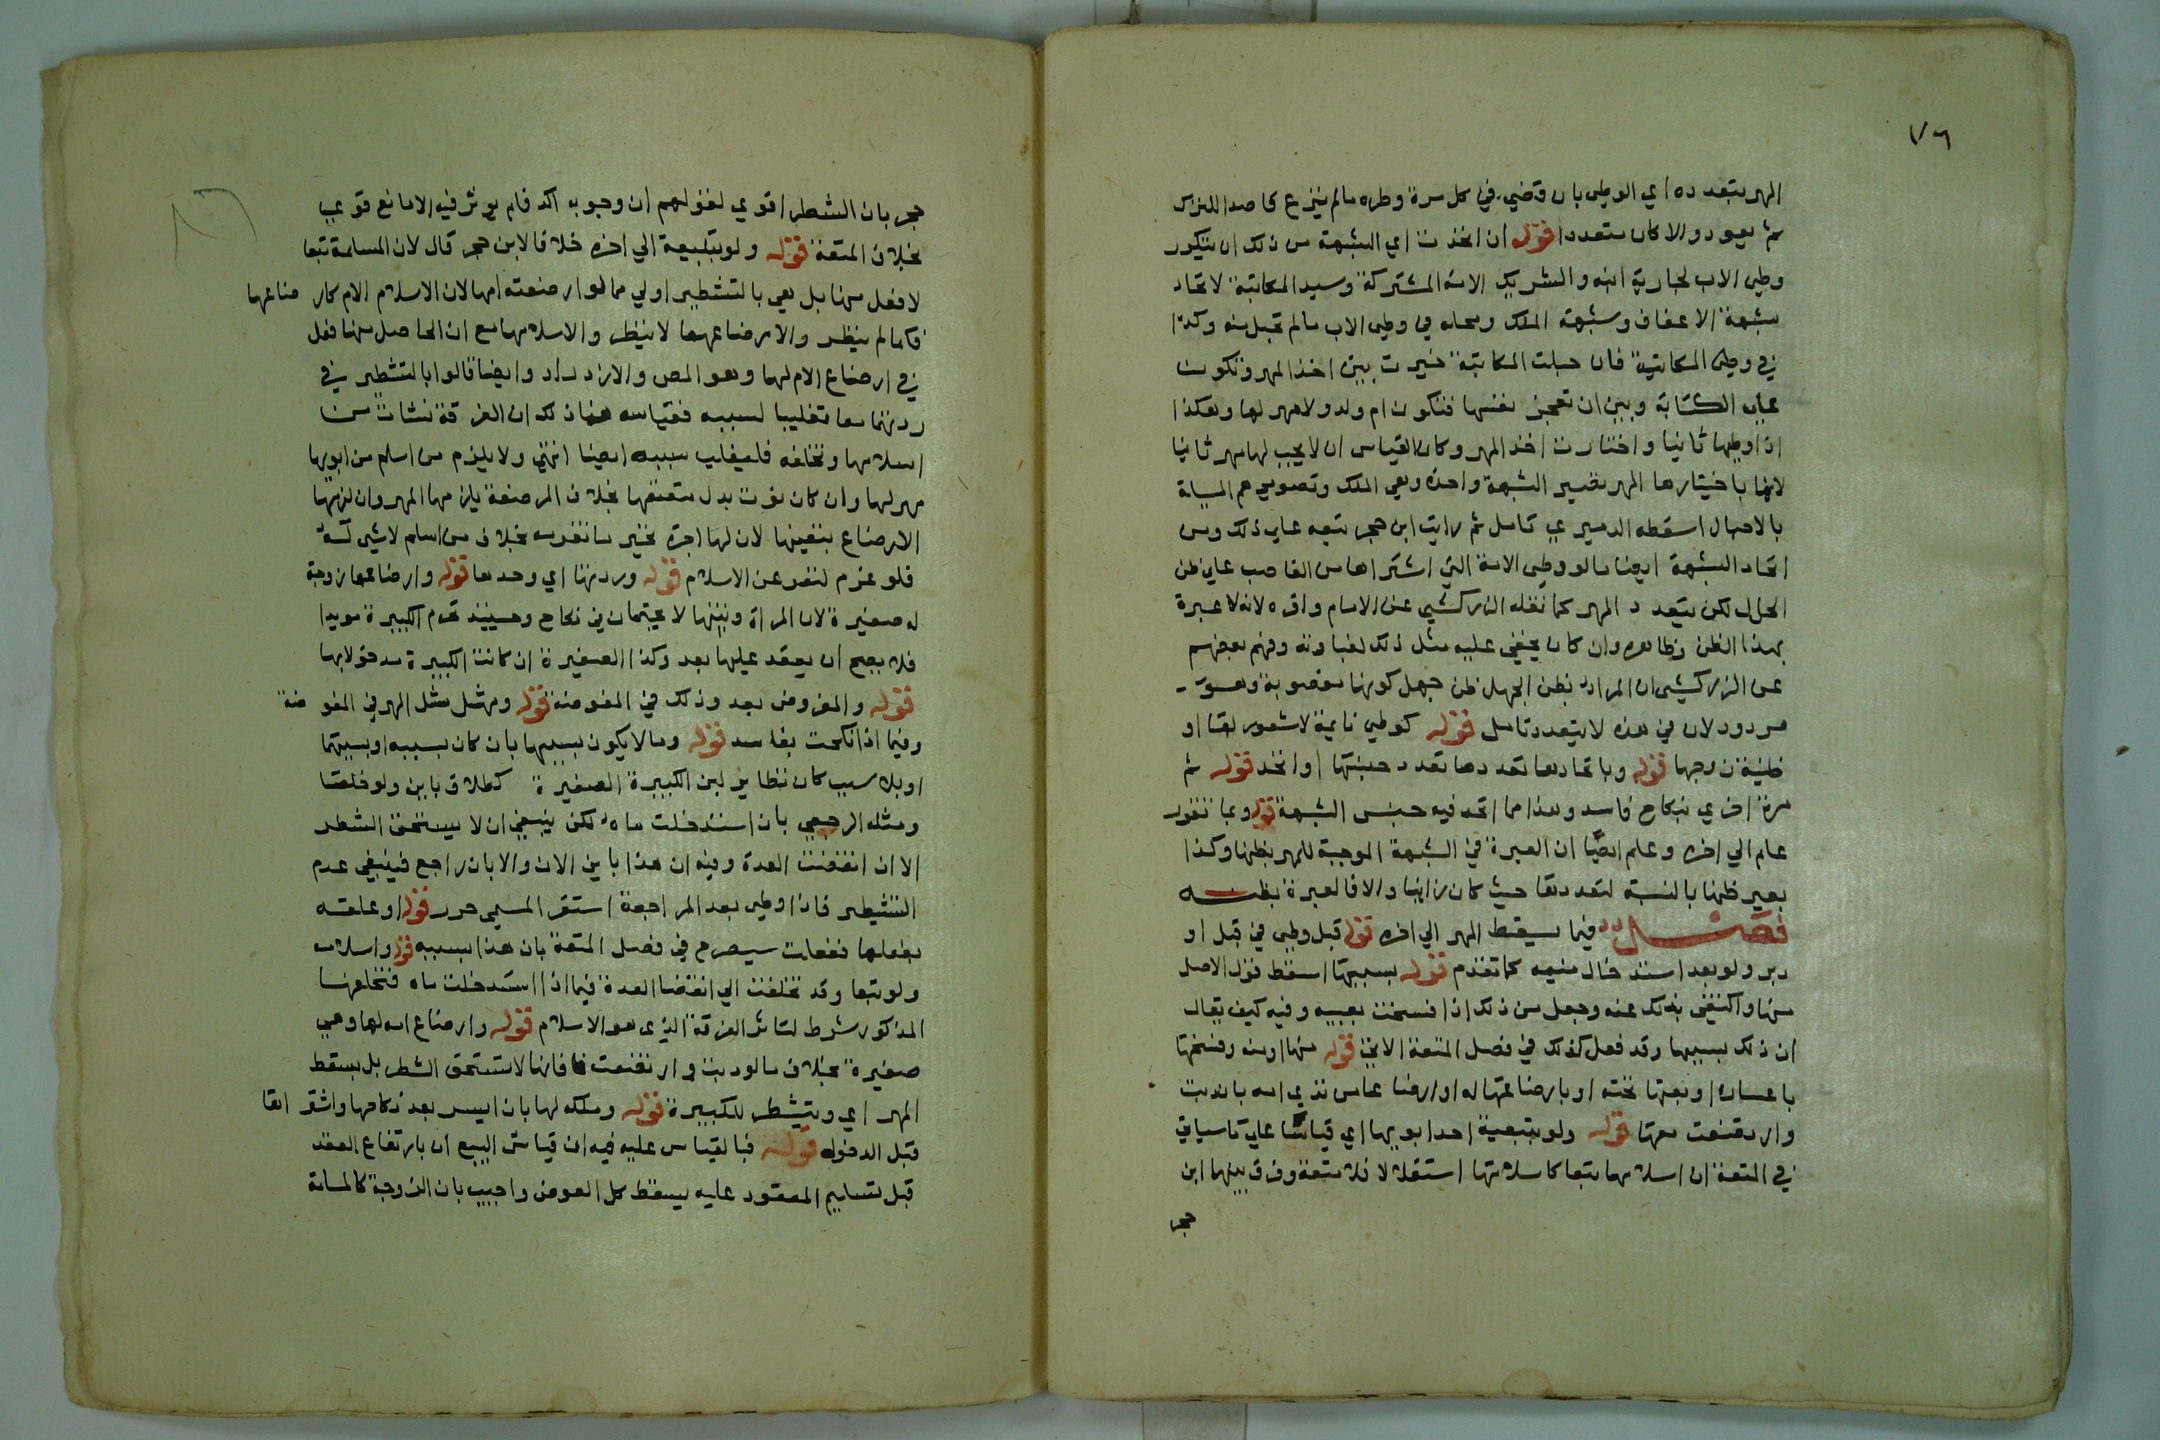 ٧٦
المهر بتعدده اي الوطى بان قضي في كل مرة وطره مالم ينزع قاصدا للترك
ثم يعود والا كان متعددا قوله ان اتحدت اي الشبهة من ذلك ان يتكرر
وطي الاب لجارية ابنه والشريك الامة المشتركة وسيد المكاتبة لاتحاد
شبهة الاعفاف وشبهة الملك ومحله في وطى الاب مالم تحبل منه وكذا
في وطى المكاتبة فان حبلت المكاتبة خيرت بين اخذ المهر وتكون
على الكتابة وبين ان تعجز نفسها فتكون ام ولد ولا مهر لها وهكذا
اذا وطيها ثانيا واختارت اخذ المهر وكان القياس ان لا يجب لها مهر ثانيا
لانها باختيارها المهر تصير الشبهة واحدة وهي الملك وتصويرهم المسالة
بالاحبال اسقطه الدميري تامل ثم رايت ابن حجر نبه على ذلك ومن
اتحاد الشبهة ايضا مالو وطى الامة التي اشتراها من الغاصب على ظن
الحل لكن يتعدد المهر كما نقله الزركشي عن الامام واقره لانه لا عبرة
بهذا الظن وان كان يخفي عليه مثل ذلك لغباوته وفهم بعضهم
عن الزركشي ان المراد بظن الجهل ظن جهل كونها مغصوبة وهو
مردود لان في هذه لا يتعدد تامل قوله كوطي نايمة لا شعور لها او
ظنية زوجها قوله وباتحادها تعددها تعدد جنسها او اتحد قوله ثم
مرة اخرى بنكاح فاسد وهذا مما اتحد فيه جنس الشبهة قوله وبما تقرر
علم الي اخره وعلم ايضا ان العبرة في الشبهة الموجبة للمهر بظنها وكذا
بغير ظنها بالنسبة لتعددها حيث كان زانيا والا فالعبرة بظنه
فصل فيما يسقط المهر الي اخره قوله قبل وطى في قبل او
دبر ولو بعد استدخال منيه كما تقدم قوله بسببها اسقط قول الاصل
منها واكتفى بذلك عنه وجعل من ذلك اذا فسخت بعيبه وفيه كيف يقال
ان ذلك بسببها وقد فعل كذلك في فصل المتعة الاتي قوله منها او منه وفسخها
باعساره او بعتقها تحته او بارضاعها له او ارضاعها من ثدي امه بان دبت
وارتضعت منها قوله ولو بتبعية احد ابويها اي قياسا على ما سياتي
في المتعة ان اسلامها تبعا كاسلامها استقلالا فلا متعة وفرق بينهما ابن
حجر
حجر بان الشطر اقوى لقولهم ان وجوبه اكد فلم يوثر فيه الا مانع قوي
بخلاف المتعة قوله ولو بتبعية الي اخره خلافا لابن حجر قال لان المسلمة تبعا
لا فعل منها بل هي بالتشطير اولى مما لو ارضعته امها لان الاسلام الام كارضاعها
فكما لم ينظر والا رضاعهما لا ينظر والاسلامها مع ان الحاصل منها فعل
في ارضاع الام لها وهو المص والازدراد وايضا قالوا بالتشطير في
ردتهما معا تغليبا لسببه فقياسه هنا ذلك ان الفرقة نشات من
اسلامها وتخلفه فليغلب سببه ايضا انتهى ولا يلزم من اسلم من ابويها
مهر لها وان كان فوت بدل متعتها بخلاف المرضعة يلزمها المهر وان لزمها
الارضاع بتعينها لان لها اجرة تجبر ما تغرمه بخلاف من اسلم لا شي له
فلو غرم لنفر عن الاسلام قوله وردتها اي وحدها قوله وارضاعها زوجة
له صغيرة لان المراة وبنتها لا يجتمعان في نكاح وحينيذ تحرم الكبيرة موبدا
فلا يصح ان يعقد عليها بعد وكذا الصغيرة ان كانت الكبيرة مدخولا بها
قوله والمفروض بعد وذلك في المفوضة قوله ومثل مثل المهر في المفوضة
وفيما اذا نكحت بفاسد قوله ومالا يكون بسببها بان كان بسببه او بسببهما
او بلا سبب كان تطاير لبن الكبيرة الصغيرة كطلاق باين ولو خلعا
ومثله الرجعي بان استدخلت ماءه لكن ينبغي ان لا يستحق الشطر
الا ان انقضت العدة وفيه ان هذا باين الان والا بان راجع فينبغي عدم
التشطير فاذا وطى بعد المراجعة استقر المسمى حرر قوله او علقه
بفعلها ففعلت سيصرح في فصل المتعة بان هذا بسببه قوله واسلامه
ولو تبعا وقد تخلفت الي انقضا العدة فيما اذا استدخلت ماه فتخلفها
المذكور شرط لتاثير الفرقة الذي هو الاسلام قوله وارضاع امه لها وهي
صغيرة بخلاف مالو دبت وارتضعت فانها لا تستحق الشطر بل يسقط
المهر اي ويتشطر للكبيرة قوله وملكه لها بان ايسر بعد نكاحها واشترايها
قبل الدخول قوله فبالقياس عليه فيه ان قياس البيع ان بارتفاع العقد
قبل تسليم المعقود عليه يسقط كل العوض واجيب بان الزوجة كالمسلمة